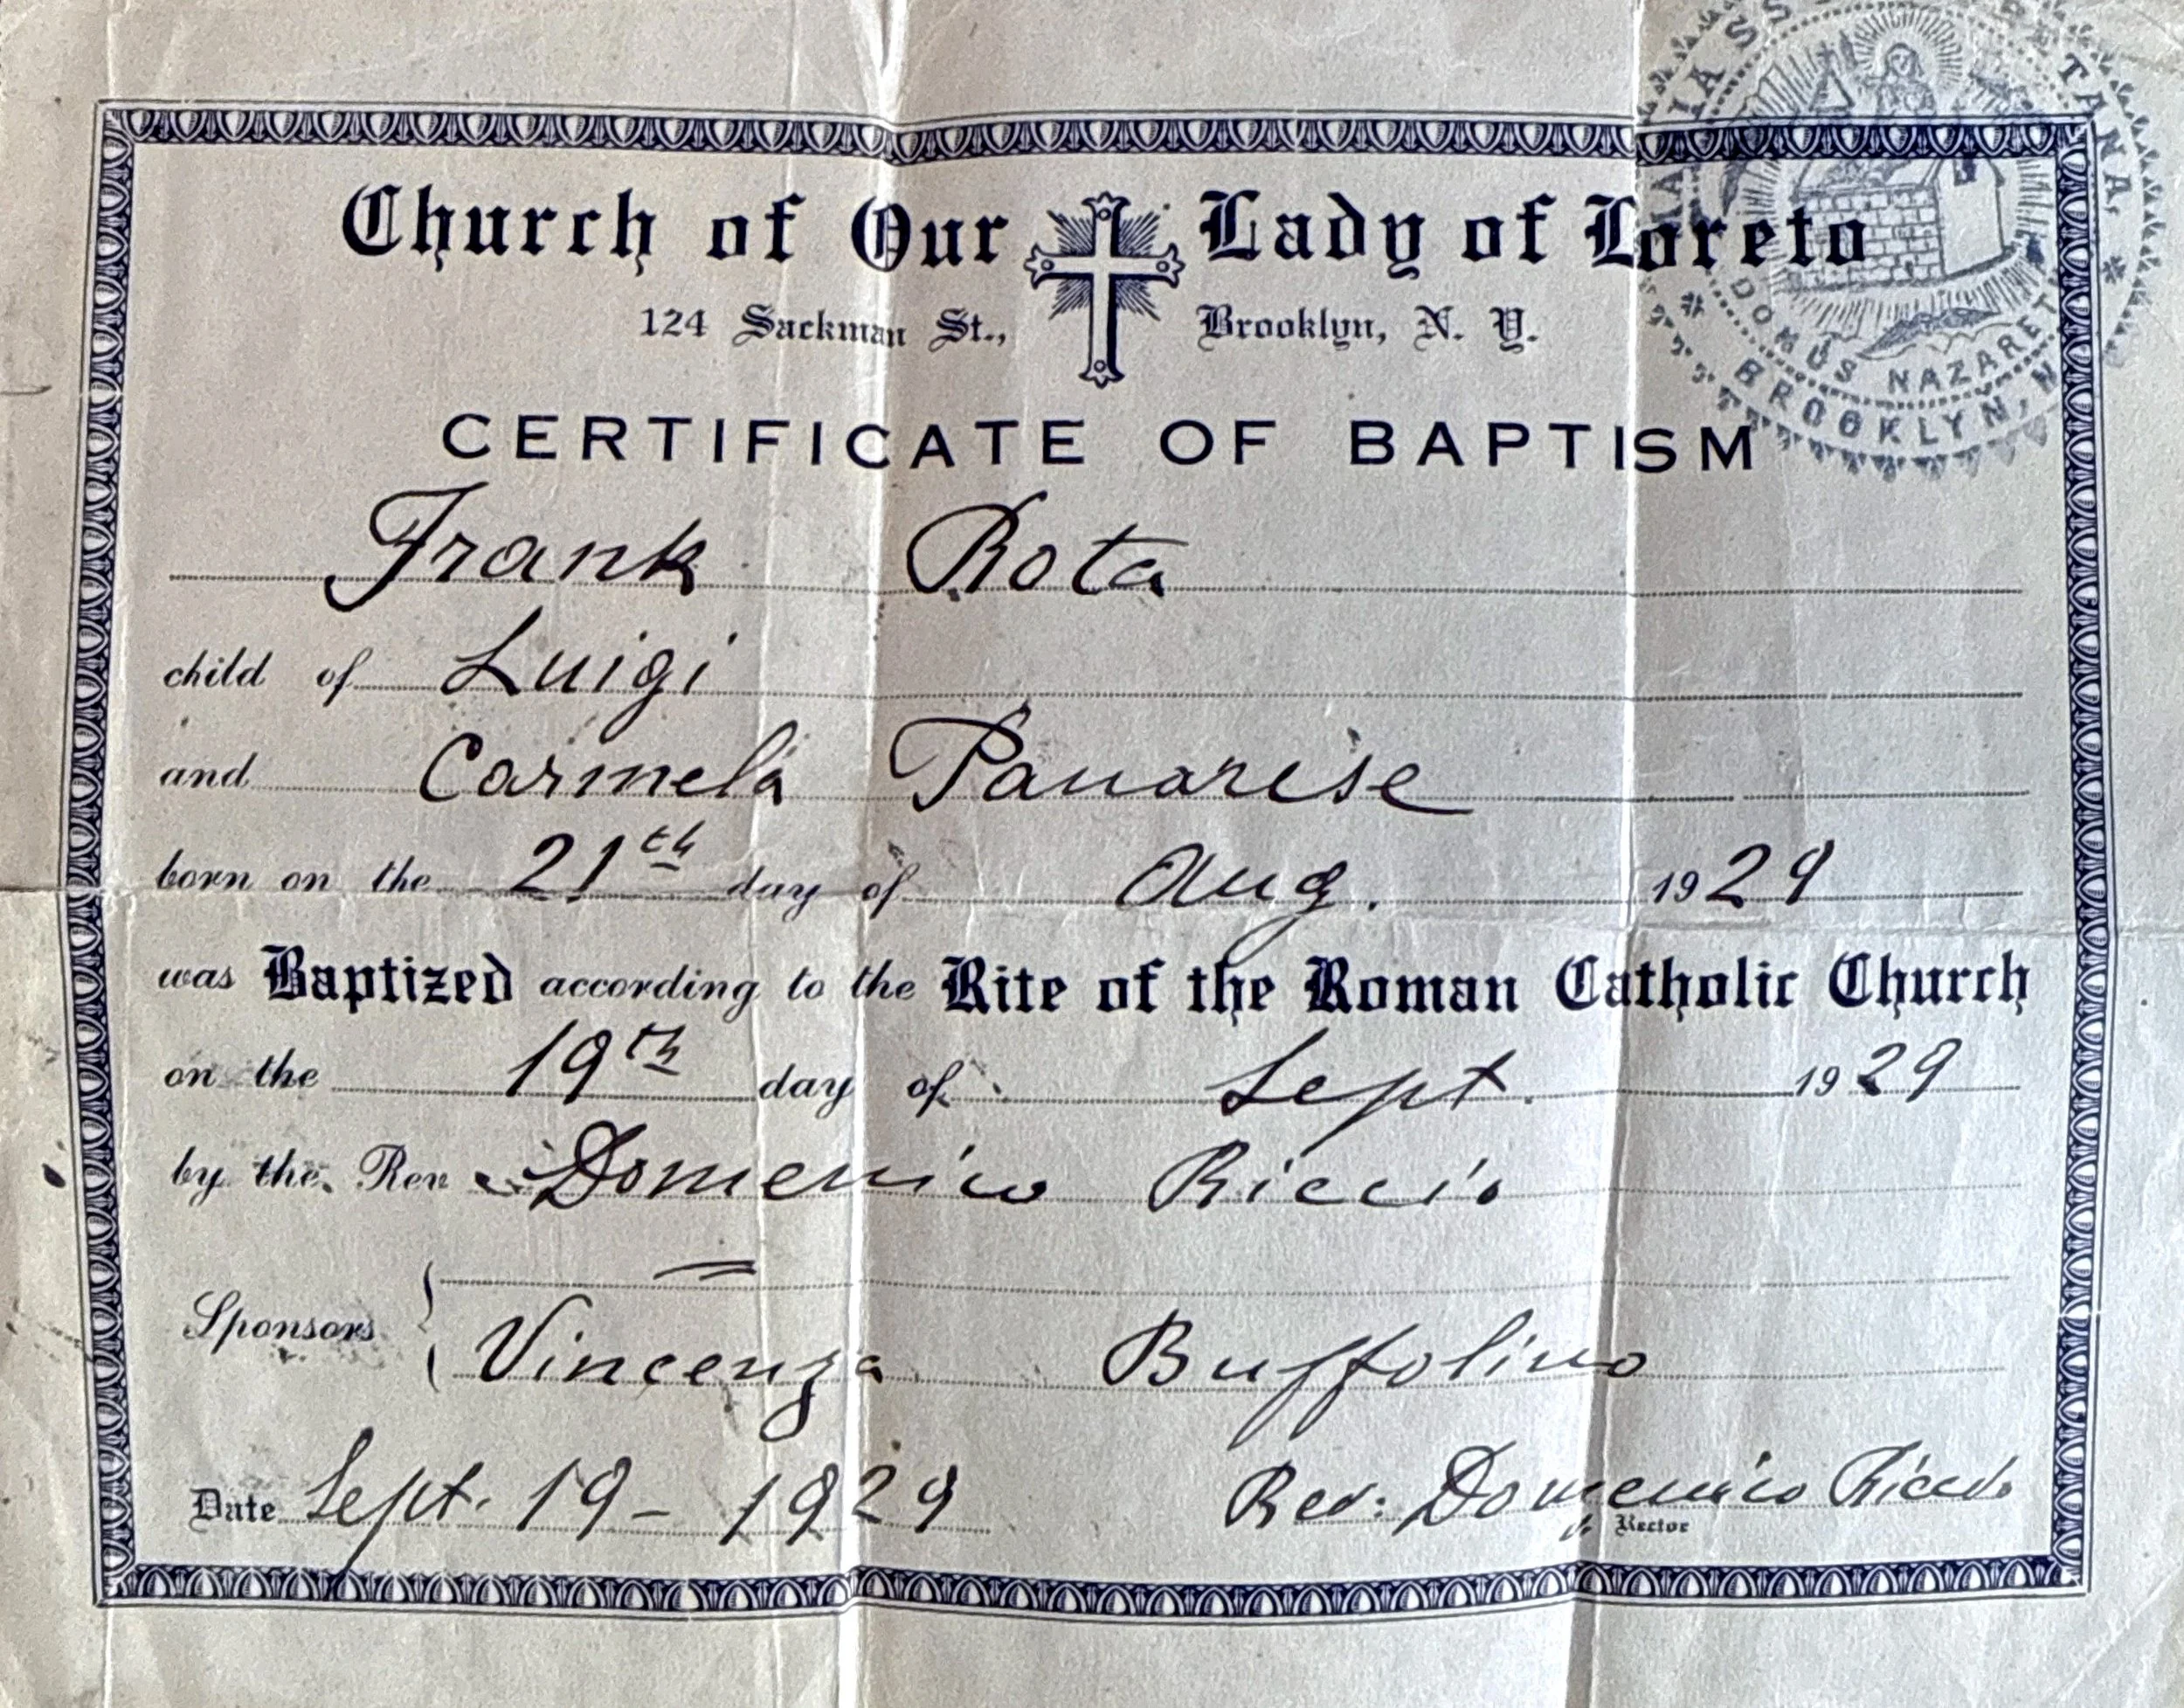 Church of Our Lady of Loreto
124 Sackman St., Brooklyn, N. Y.
DOMUS NAZARET
BROOKLYN, N
CERTIFICATE OF BAPTISM
Frank Rota
child of Luigi
and Carmela Panarise
born on the 21th day of Aug. 1929
was Baptized according to the Rite of the Roman Catholic Church
on the 19th day of Sept. 1929
by the Rev Domenico Riccio
Sponsors
Vincenza Buffolino
Date Sept. 19 - 1929 Rev: Domenico Riccio
Rector